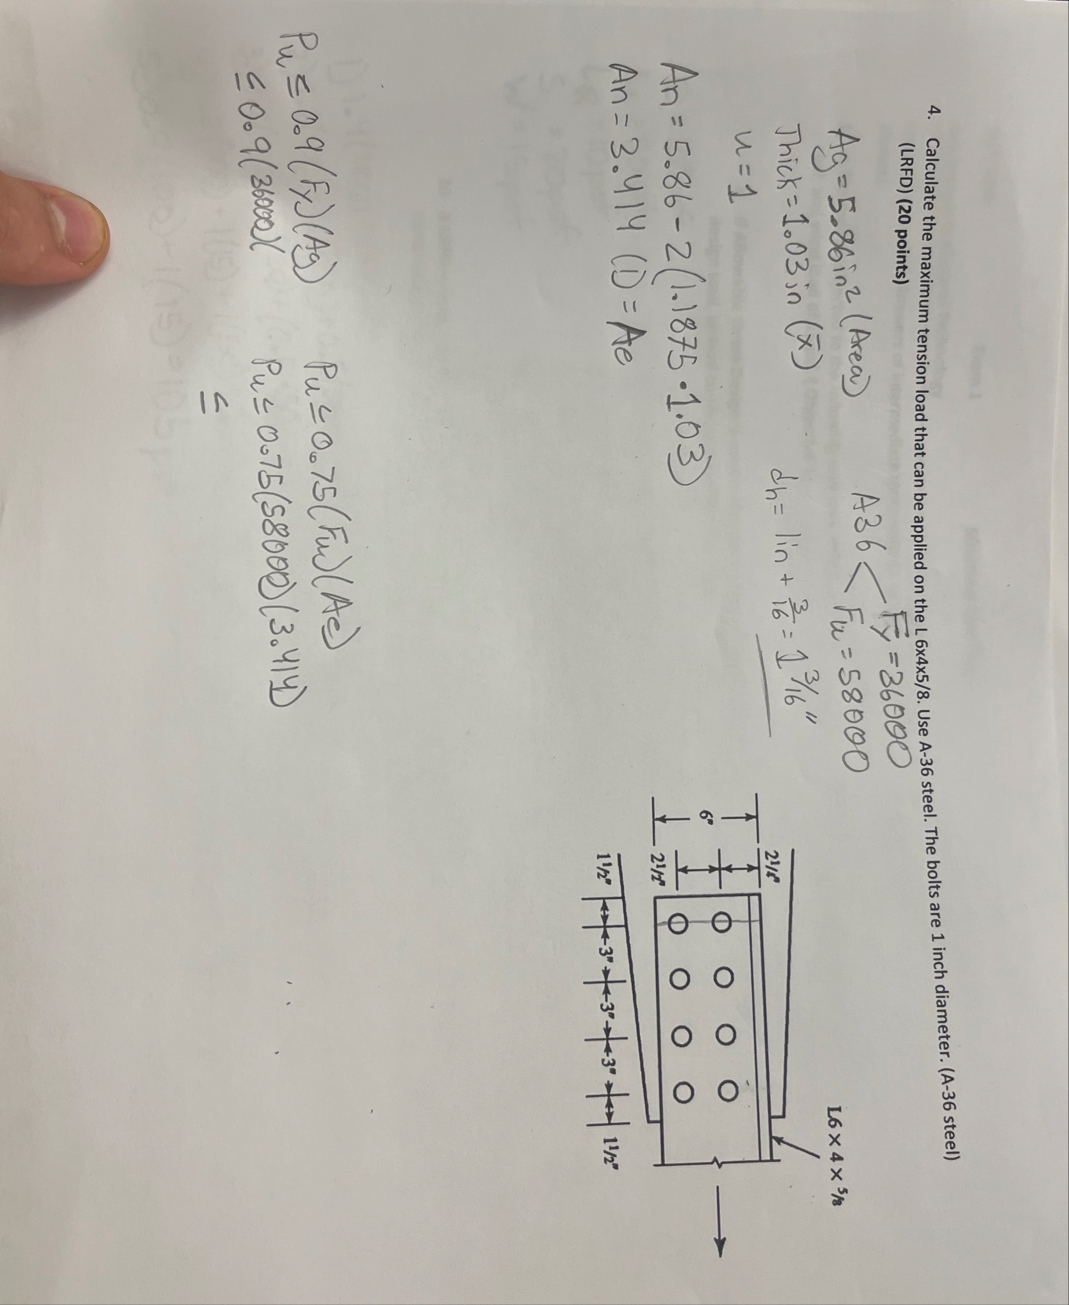 4. Calculate the maximum tension load that can be applied on the L 6x4x5/8. Use A-36 steel. The bolts are 1 inch diameter. (A-36 steel)
(LRFD) (20 points)
Ag = 5.86in² (Area)
Thick = 1.03in (x̄)
u = 1
A36 < Fy = 36000
Fu = 58000
dh = 1in + 3/16 = 1 3/16"
An = 5.86 - 2(1.1875 · 1.03)
An = 3.414 (1) = Ae
L6 × 4 × 5/8
2 1/4"
6"
2 1/2"
1 1/2" 3" 3" 3" 1 1/2"
Pu ≤ 0.9(Fy)(Ag)
≤ 0.9(36000)(
Pu ≤ 0.75(Fu)(Ae)
Pu ≤ 0.75(58000)(3.414)
≤